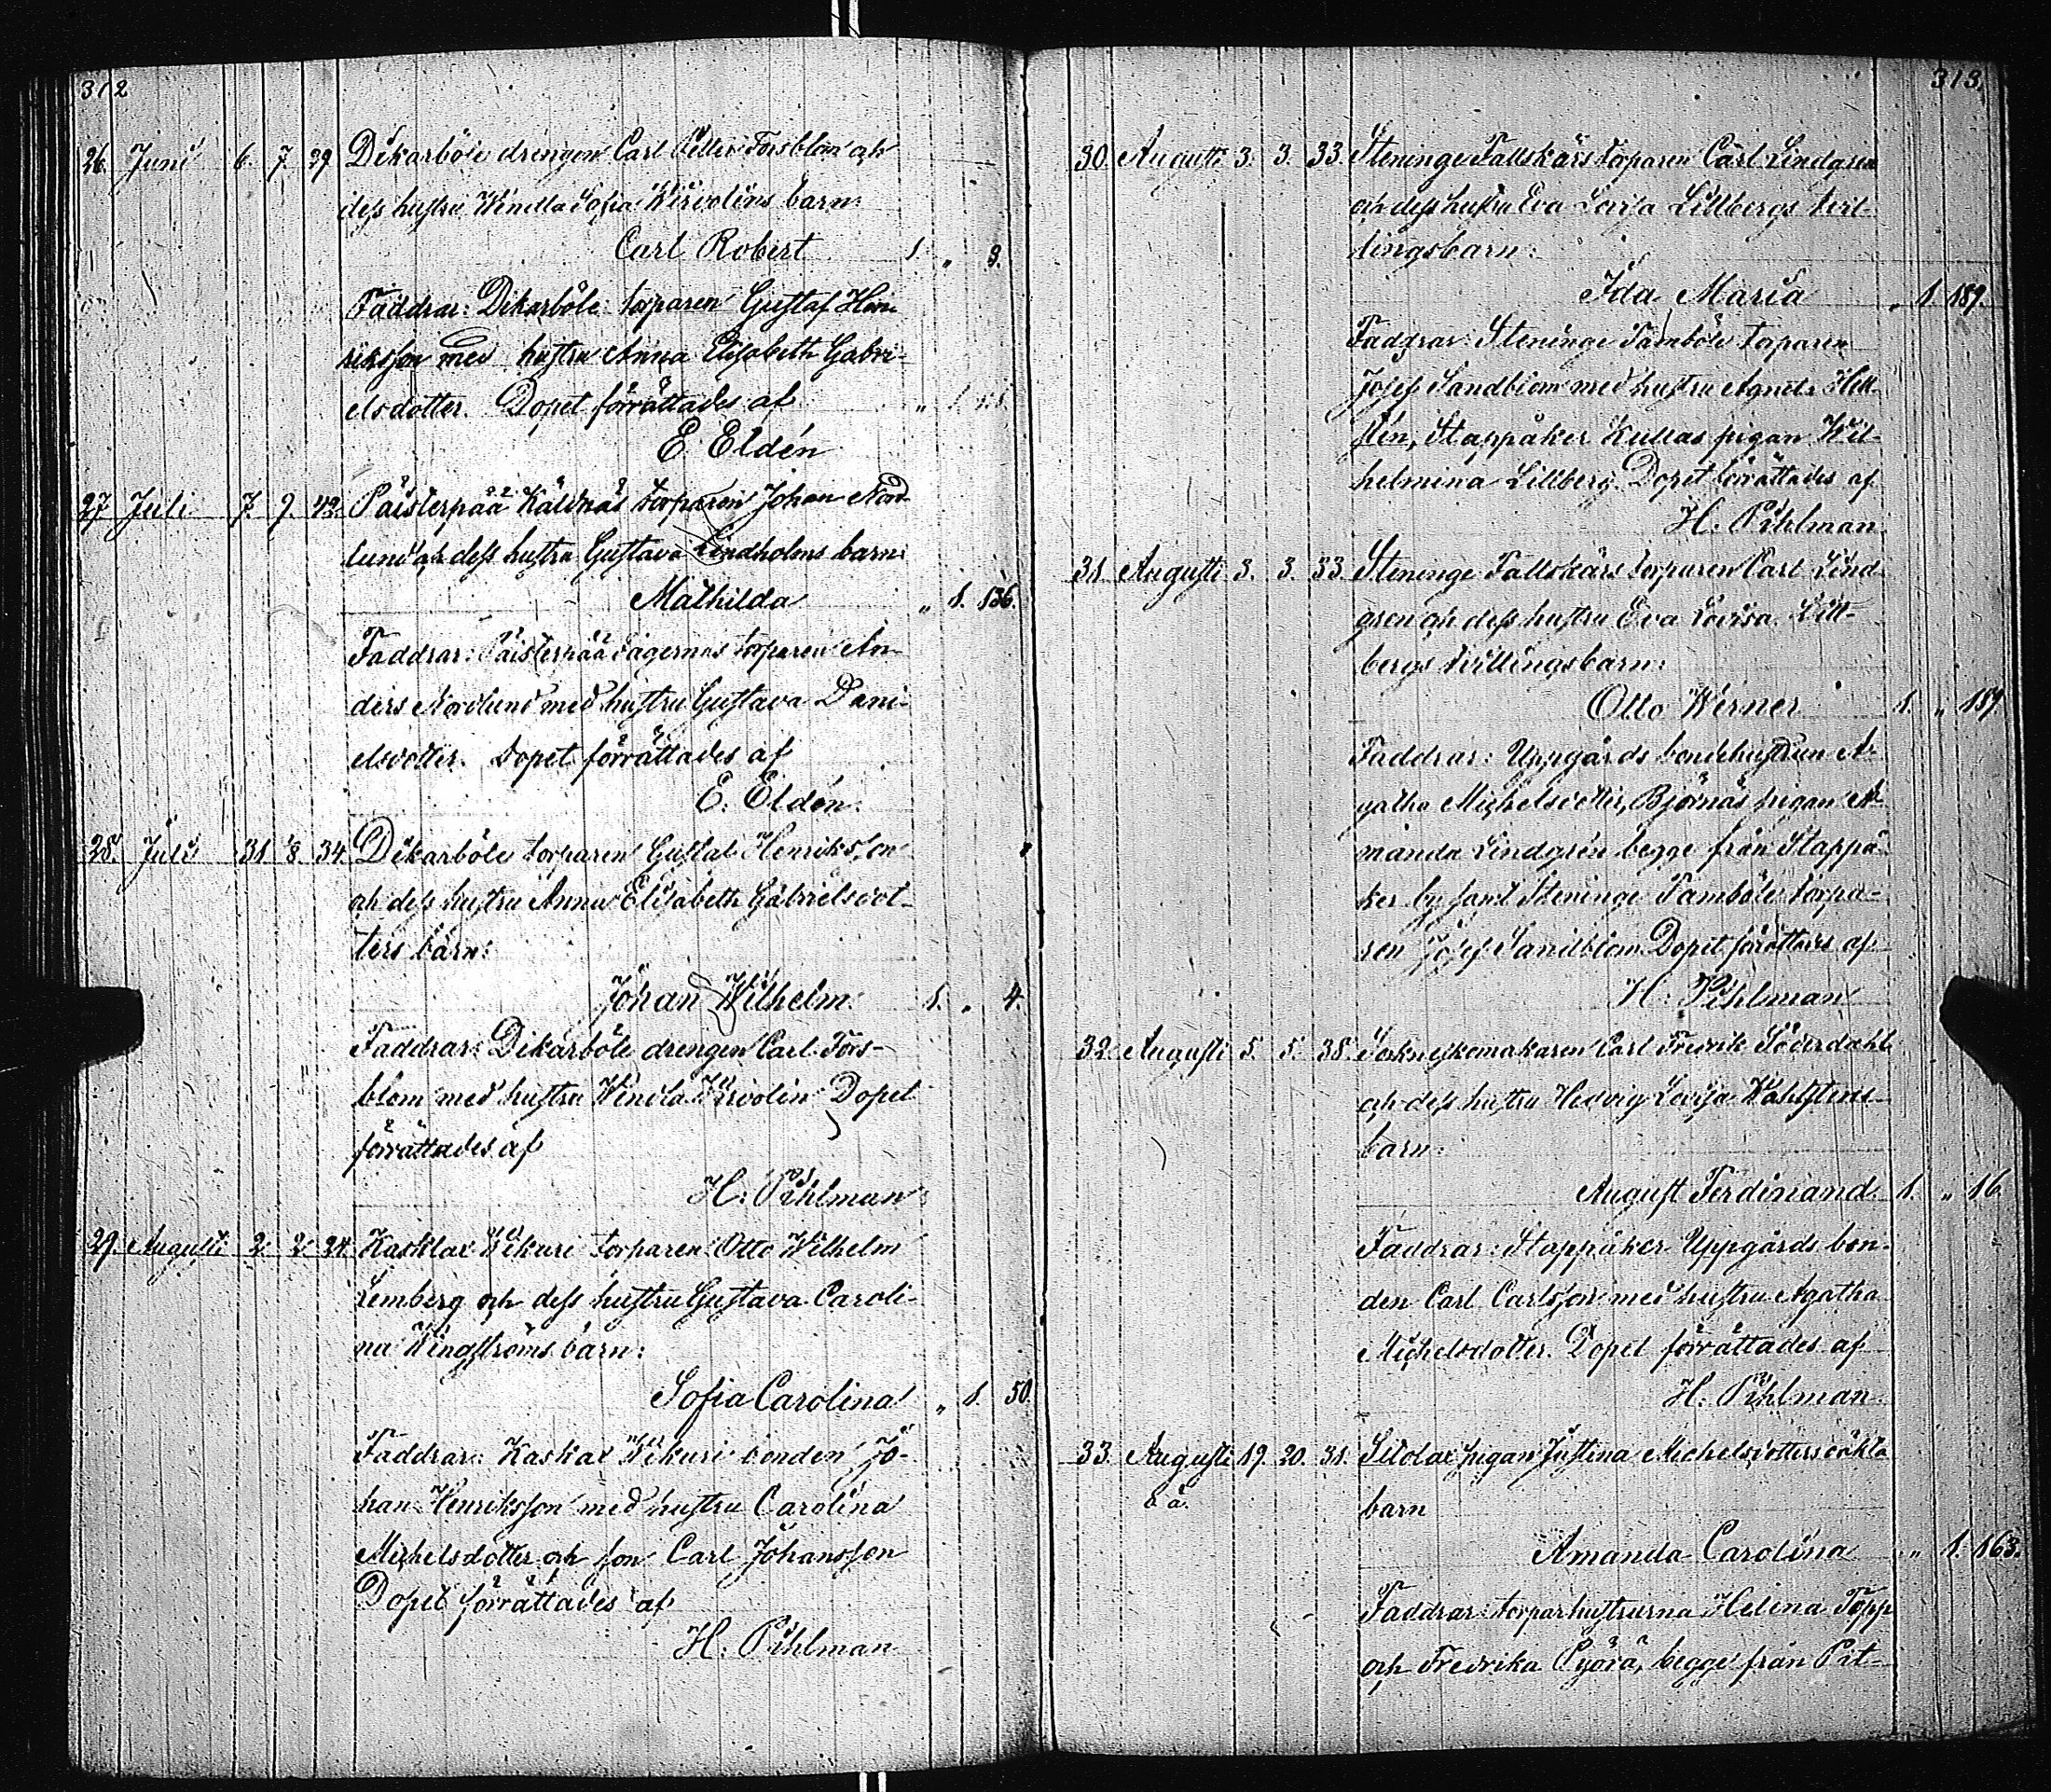 312
26. Juni 6. 7. 29 Dikarböle drengen Carl Petter Forsblom och
dess hustru Wendla Sofia Wirvolins barn:
Carl Robert 1. „ 3.
Faddrar: Dikarböle torparen Gustaf Hen-
riksson med hustru Anna Elisabeth Gabri-
elsdotter. Dopet förrättades af
E. Eldén
27 Juli 7. 9. 42. Päisterpää Käldnäs torparen Johan Nord-
lund och dess hustru Gustava Lindholms barn:
Mathilda „ 1. 136.
Faddrar: Päisterpää Fagernäs torparen An-
ders Nordlund med hustru Gustava Dani-
elsdotter. Dopet förrättades af
E. Eldén.
28. Juli 31 8. 34. Dikarböle torparen Gustaf Henriksson
och dess hustru Anna Elisabeth Gabrielsdot-
ters barn:
Johan Wilhelm 1. „ 4.
Faddrar: Dikarböle drengen Carl Fors-
blom med hustru Wendla Wirvolin Dopet
förrättades af
H. Pihlman
29. Augusti 2. 2. 24. Kasklax Wikuri torparen Otto Wilhelm
Lemberg och dess hustru Gustava Caroli-
na Wengströms barn:
Sofia Carolina „ 1. 50.
Faddrar: Kasklax Wikuri bonden Jo-
han Henriksson med hustru Carolina
Michelsdotter och son Carl Johansson
Dopet förrättades af
H. Pihlman
313.
30. Augusti 3. 3. 33. Steninge Fallskärs torparen Carl Lindgren
och dess hustru Eva Lovisa Lillbergs tvil-
lingsbarn:
Ida Maria „ 1. 189.
Faddrar: Steninge Tamböle torparen
Josef Sandblom med hustru Agneta Hell-
stén, Stappåker Kullas pigan Wil-
helmina Lillberg. Dopet förrättades af
H. Pihlman.
31. Augusti 3. 3. 33. Steninge Fallskärs torparen Carl Lind-
gren och dess hustru Eva Lovisa Lill-
bergs tvillingsbarn:
Otto Werner 1. „ 189
Faddrar: Uppgårds bondehustrun A-
gatha Michelsdotter, Björnäs pigan A-
manda Lindgrén begge från Stappå-
ker by samt Steninge Tamböle torpa-
ren Josef Sandblom. Dopet förrättades af
H. Pihlman
32. Augusti 5. 5. 38. Sockneskomakaren Carl Fredrik Söderdahl
och dess hustru Hedvig Lovisa Wahlstens
barn:
August Ferdinand. 1. „ 16.
Faddrar: Stappåker Uppgårds bon-
den Carl Carlsson med hustru Agatha
Michelsdotter. Dopet förrättades af
H. Pihlman.
33. Augusti 19. 20. 31. Sildlax pigan Justina Michelsdotters oäkta
o ä. barn
Amanda Carolina „ 1. 163.
Faddrar: torparhustrurna Helena Topp
och Fredrika Pyörä, begge från Pit-